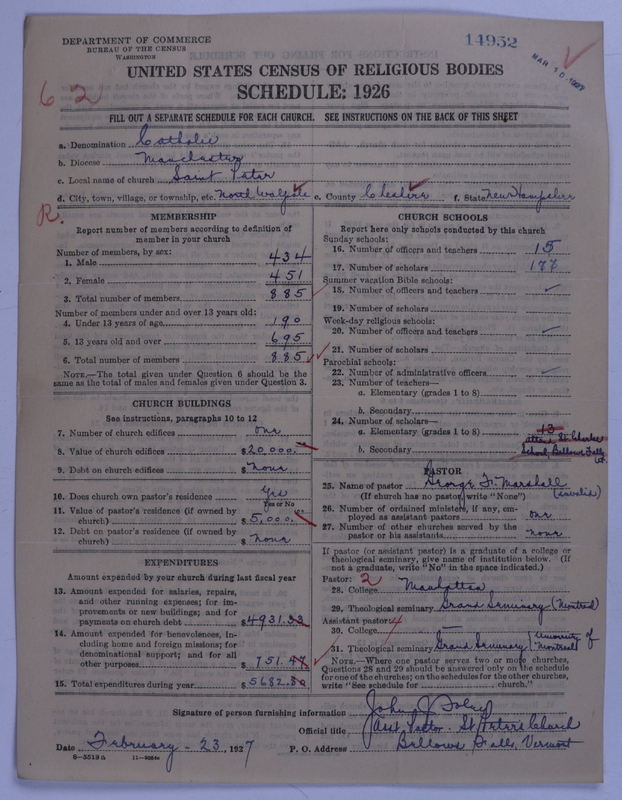 DEPARTMENT OF COMMERCE
BUREAU OF THE CENSUS
WASHINGTON
14952
MAR 10 1927
62
UNITED STATES CENSUS OF RELIGIOUS BODIES
SCHEDULE: 1926
FILL OUT A SEPARATE SCHEDULE FOR EACH CHURCH. SEE INSTRUCTIONS ON THE BACK OF THIS SHEET
a. Denomination Catholic
b. Diocese Manchester
c. Local name of church Saint Peter
d. City, town, village, or township, etc. North Walpole e. County Cheshire f. State New Hampshire
R.
MEMBERSHIP
Report number of members according to definition of
member in your church
Number of members, by sex:
1. Male 434
2. Female 451
3. Total number of members 885
Number of members under and over 13 years old:
4. Under 13 years of age 190
5. 13 years old and over 695
6. Total number of members 885
NOTE.—The total given under Question 6 should be the
same as the total of males and females given under Question 3.
CHURCH BUILDINGS
See instructions, paragraphs 10 to 12
7. Number of church edifices one
8. Value of church edifices $20,000.
9. Debt on church edifices $ None
10. Does church own pastor's residence Yes
Yes or No
11. Value of pastor's residence (if owned by
church) $5,000.
12. Debt on pastor's residence (if owned by
church) $ None
EXPENDITURES
Amount expended by your church during last fiscal year
13. Amount expended for salaries, repairs,
and other running expenses; for im-
provements or new buildings; and for
payments on church debt $4931.33
14. Amount expended for benevolences, in-
cluding home and foreign missions; for
denominational support; and for all
other purposes $751.47
15. Total expenditures during year $5682.80
CHURCH SCHOOLS
Report here only schools conducted by this church
Sunday schools:
16. Number of officers and teachers 15
17. Number of scholars 177
Summer vacation Bible schools:
18. Number of officers and teachers
19. Number of scholars
Week-day religious schools:
20. Number of officers and teachers
21. Number of scholars
Parochial schools:
22. Number of administrative officers
23. Number of teachers—
a. Elementary (grades 1 to 8)
b. Secondary
24. Number of scholars—
a. Elementary (grades 1 to 8) 13
attend St. Charles
b. Secondary School, Bellows Falls
Vt.
PASTOR
25. Name of pastor George F. Marshall
(If church has no pastor, write "None") (invalid)
26. Number of ordained ministers, if any, em-
ployed as assistant pastors one
27. Number of other churches served by the
pastor or his assistants none
If pastor (or assistant pastor) is a graduate of a college or
theological seminary, give name of institution below. (If
not a graduate, write "No" in the space indicated.)
Pastor: 2
28. College Manhattan
29. Theological seminary Grand Seminary (Montreal)
Assistant pastor: 4
30. College —
31. Theological seminary Grand Seminary (University of Montreal)
NOTE.—Where one pastor serves two or more churches,
Questions 28 and 29 should be answered only on the schedule
for one of the churches; on the schedules for the other churches,
write "See schedule for church."
Signature of person furnishing information John J.
Official title Asst Pastor - St Peter's Church
Date February - 23, 1927 P. O. Address Bellows Falls, Vermont